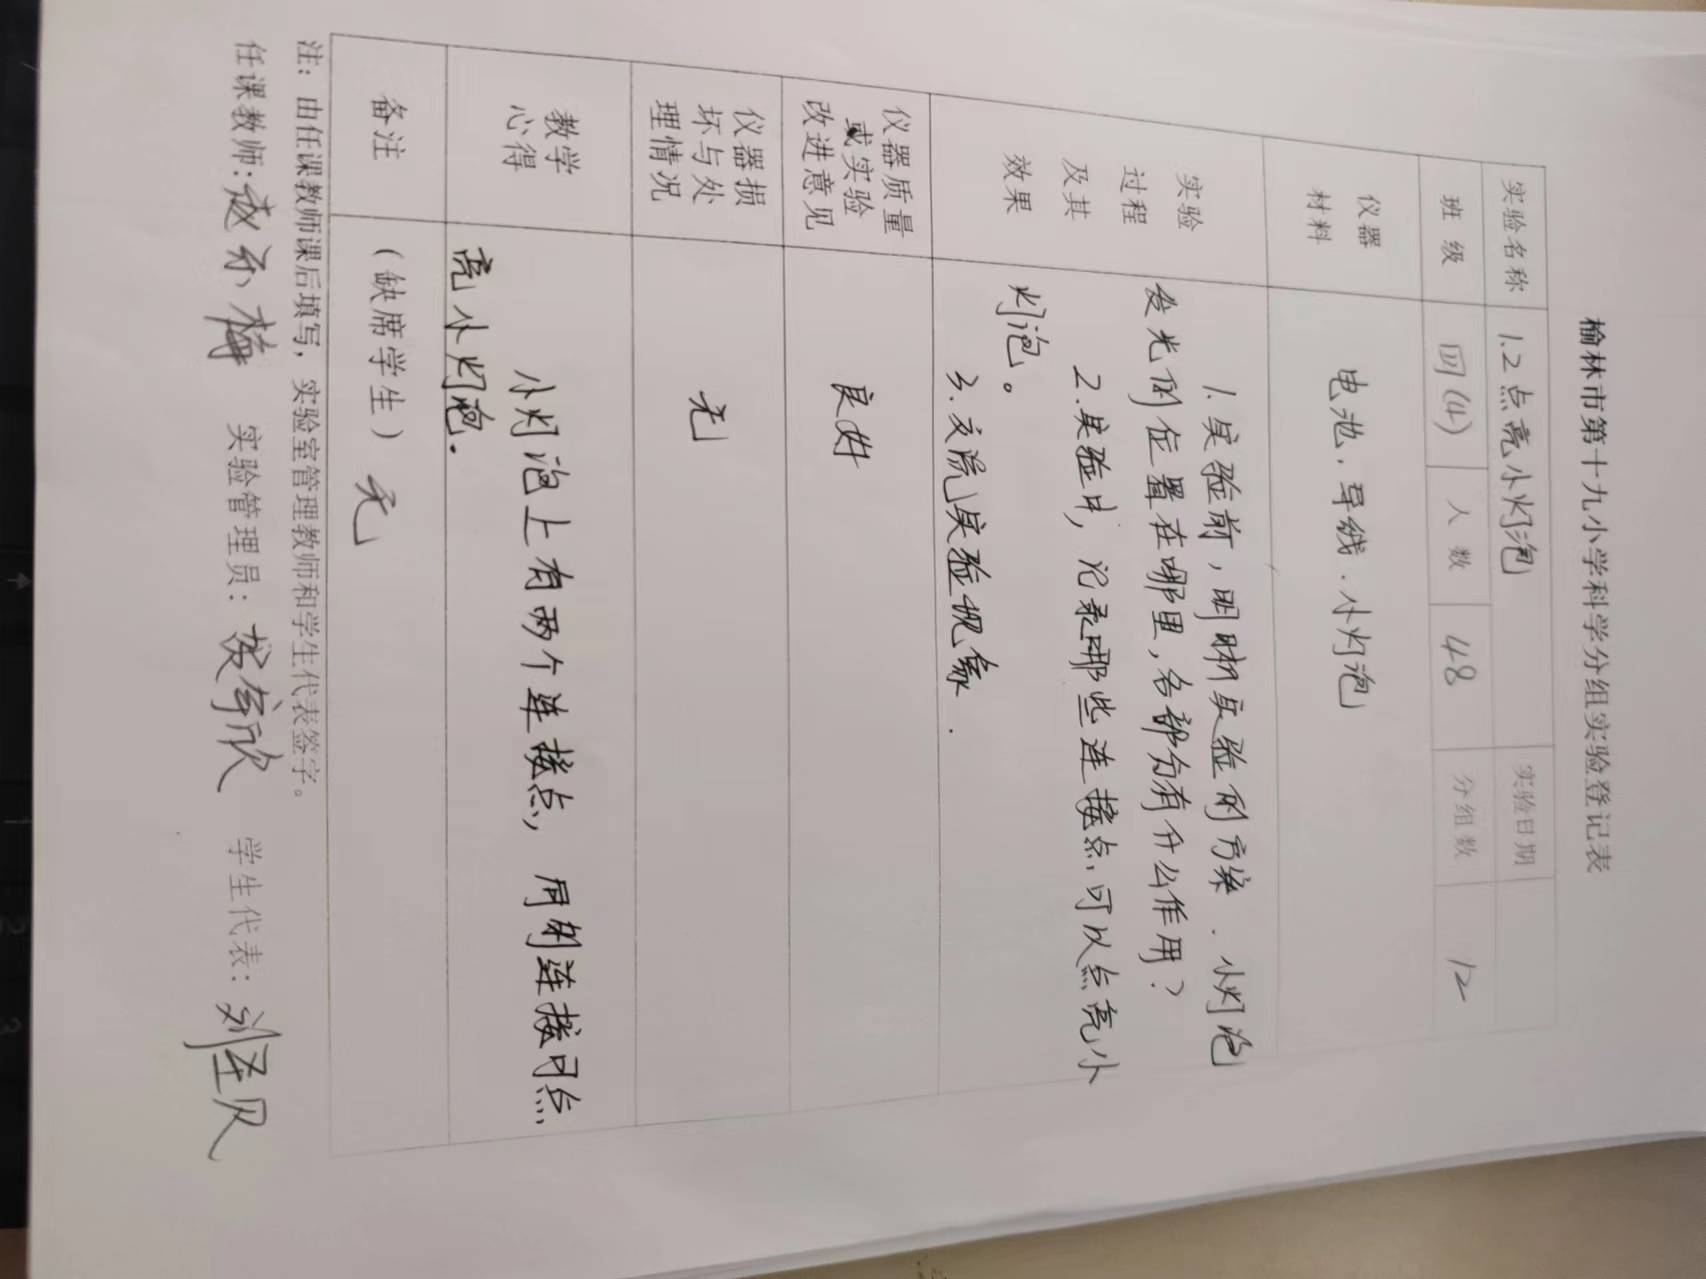 榆林市第十九小学科学分组实验登记表
实验名称 1.2点亮小灯泡 实验日期
班 级 四(4) 人 数 48 分组数 12
仪器
材料
电池、导线、小灯泡
实验
过程
及其
效果
1.实验前,明晰实验的方案.小灯泡
发光的位置在哪里,各部分有什么作用?
2.实验中,记录哪些连接点,可以点亮小
灯泡。
3.交流实验现象.
仪器质量
或实验
改进意见
良好
仪器损
坏与处
理情况
无
教学
心得
小灯泡上有两个连接点,用例连接可点
亮小灯泡.
备注
(缺席学生) 无
注:由任课教师课后填写,实验室管理教师和学生代表签字。
任课教师: 实验管理员: 学生代表: